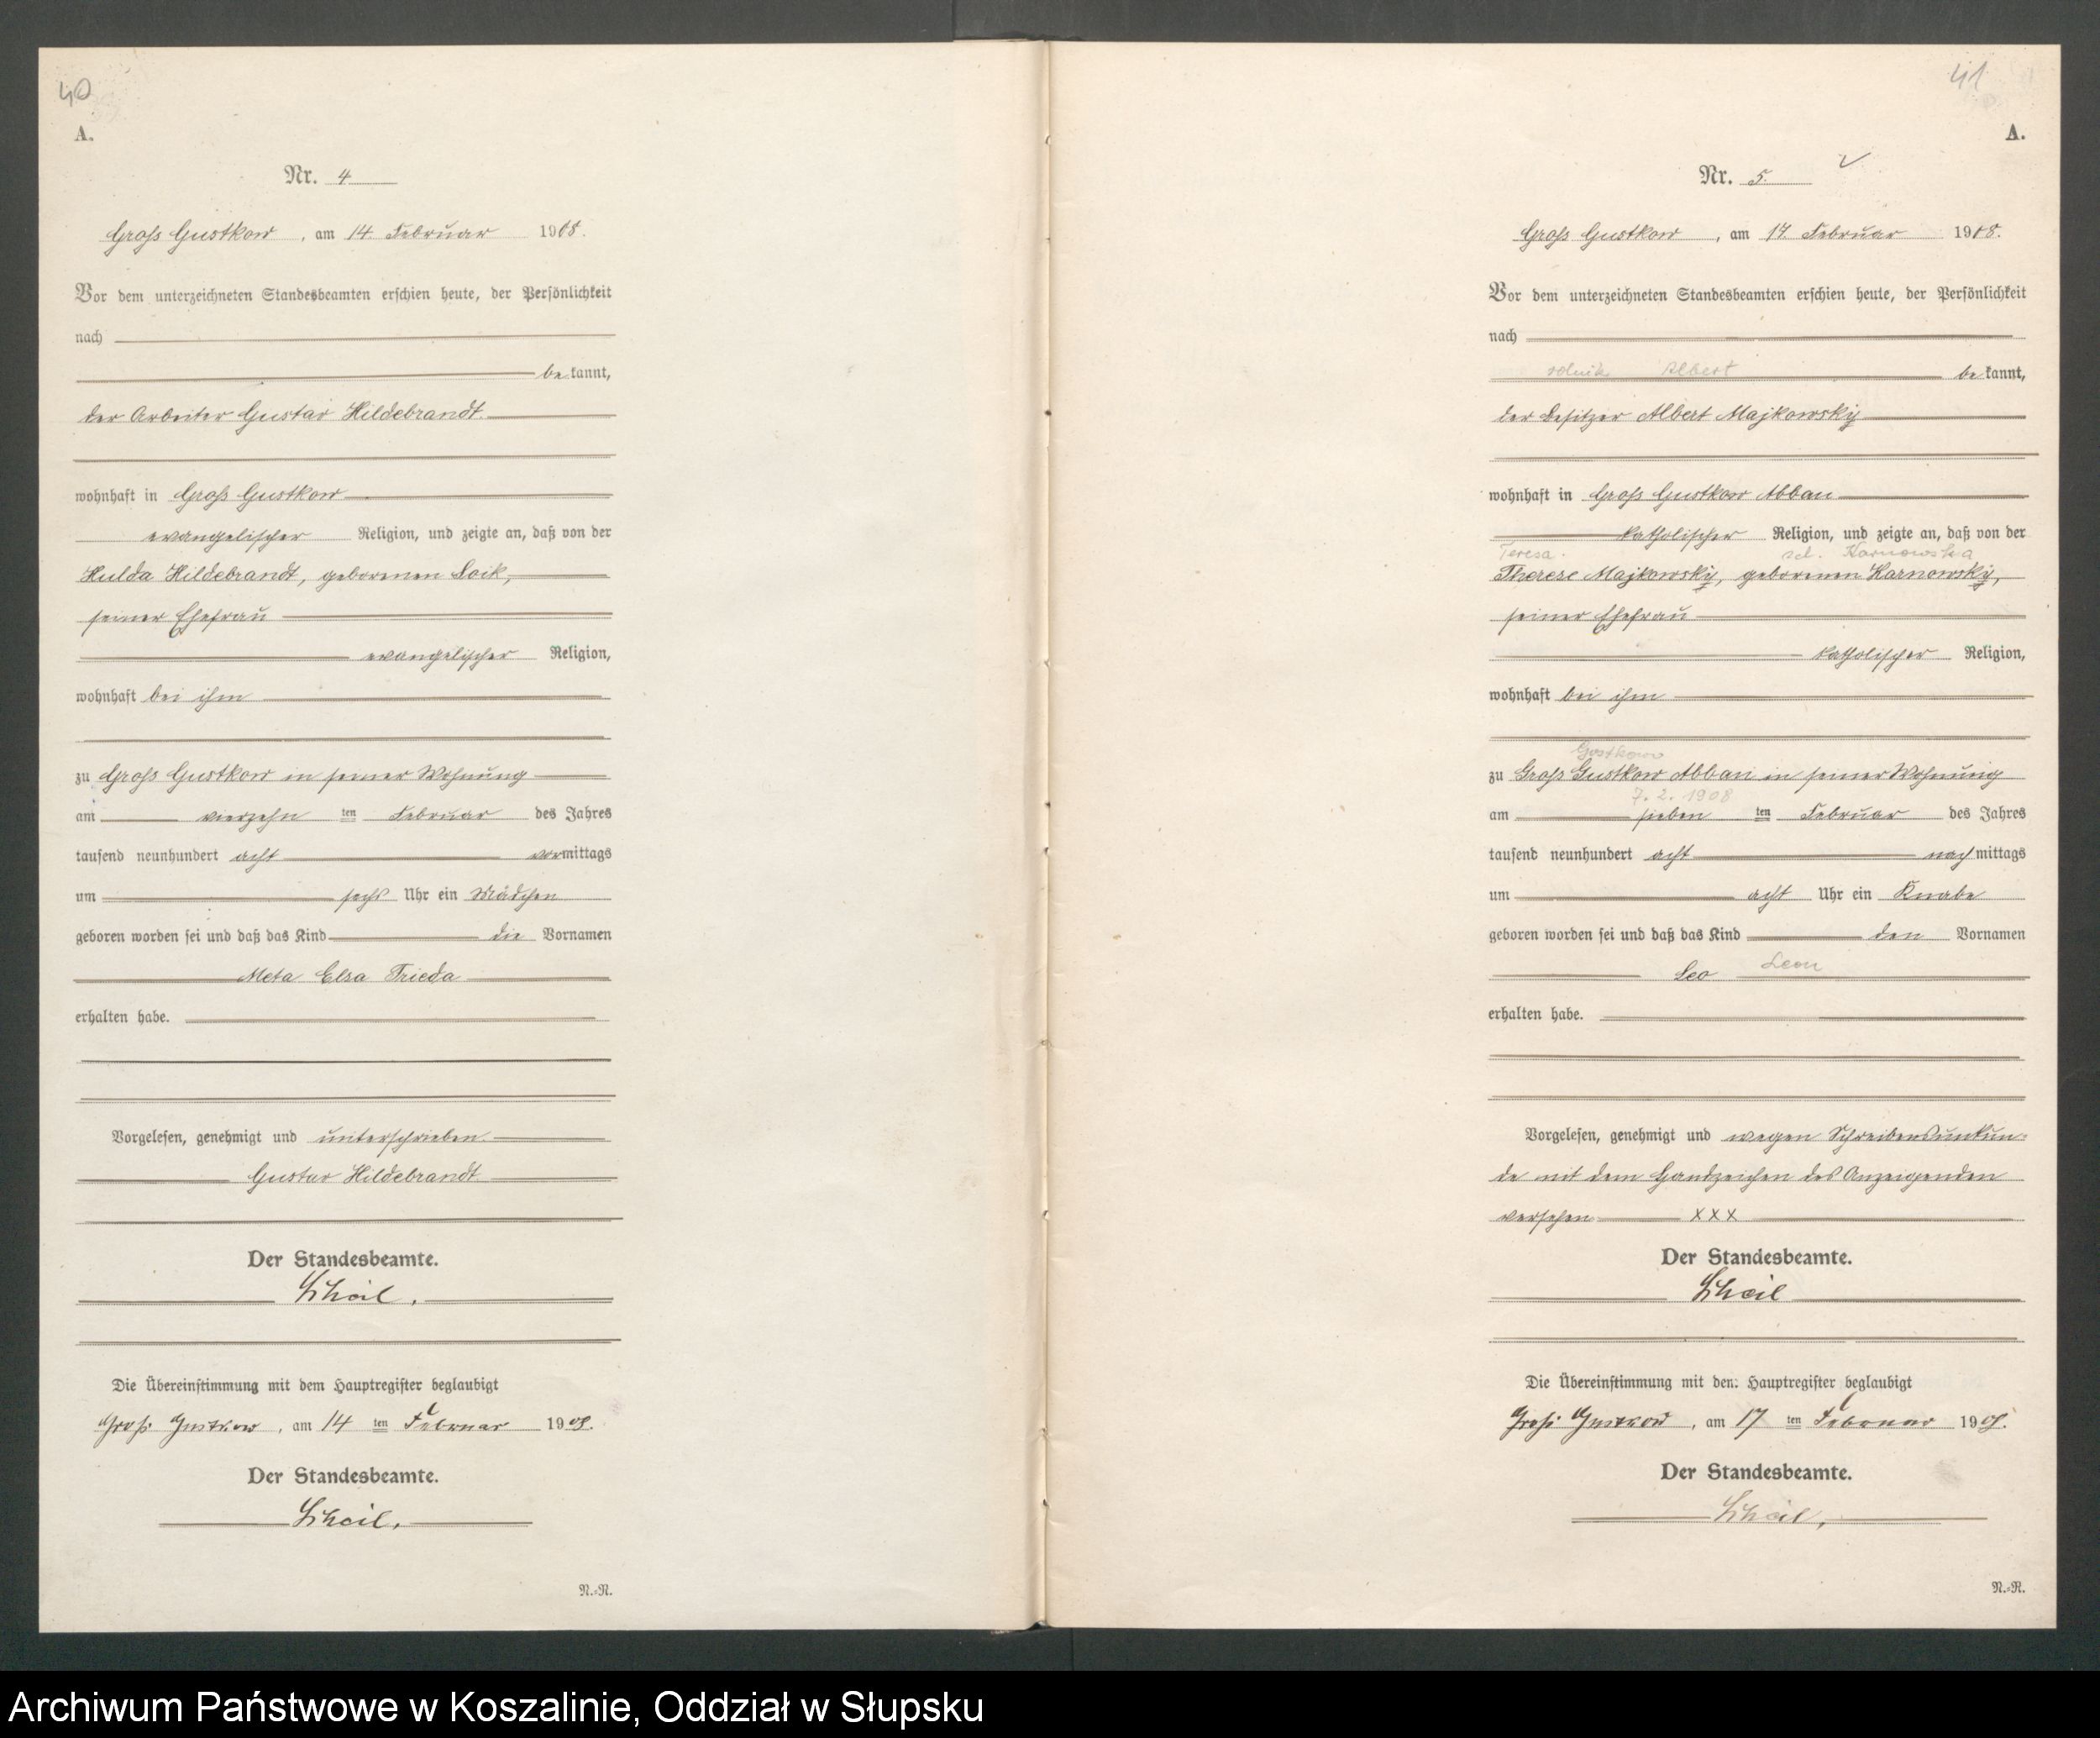 40
A.
Nr. 4
Gross Gustkow, am 14. Februar 1908.
Vor dem unterzeichneten Standesbeamten erschien heute, der Persönlichkeit
nach
bekannt,
der Arbeiter Gustav Hildebrandt
wohnhaft in Gross Gustkow
evangelischer Religion, und zeigte an, daß von der
Hulda Hildebrandt, geborenen Loik,
seiner Ehefrau
evangelischer Religion,
wohnhaft bei ihm
zu Gross Gustkow in seiner Wohnung
am vierzehn ten Februar des Jahres
tausend neunhundert acht vormittags
um sechs Uhr ein Mädchen
geboren worden sei und daß das Kind die Vornamen
Meta Elsa Frieda
erhalten habe.
Vorgelesen, genehmigt und unterschrieben.
Gustav Hildebrandt.
Der Standesbeamte.
Die Übereinstimmung mit dem Hauptregister beglaubigt
Gross Gustkow, am 14 ten Februar 1908.
Der Standesbeamte.
N.=R.
41
A.
Nr. 5.
Gross Gustkow, am 17. Februar 1908.
Vor dem unterzeichneten Standesbeamten erschien heute, der Persönlichkeit
nach
rolnik Albert bekannt,
der Besitzer Albert Majkowsky
wohnhaft in Gross Gustkow Abbau
katholischer Religion, und zeigte an, daß von der
Teresa. Karnowska
Therese Majkowsky, geborenen Karnowsky,
seiner Ehefrau
katholischer Religion,
wohnhaft bei ihm
Gostkowo
zu Gross Gustkow Abbau in seiner Wohnung
7. 2. 1908
am sieben ten Februar des Jahres
tausend neunhundert acht nachmittags
um acht Uhr ein Knabe
geboren worden sei und daß das Kind den Vornamen
Leo Leon
erhalten habe.
Vorgelesen, genehmigt und wegen Schreibensunkun-
de mit dem Handzeichen des Anzeigenden
versehen XXX
Der Standesbeamte.
Die Übereinstimmung mit dem Hauptregister beglaubigt
Gross Gustkow, am 17 ten Februar 1908.
Der Standesbeamte.
N.=R.
Archiwum Państwowe w Koszalinie, Oddział w Słupsku